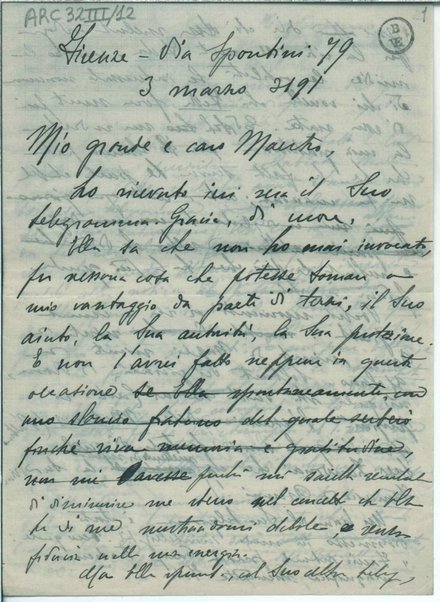 ARC 32 III/12
1
Firenze - Via Spontini 79
3 marzo
Mio grande e caro Maestro,
ho ricevuto ieri sera il Suo
telegramma. Grazie, di cuore.
Ella sa che non ho mai invocato,
per nessuna cosa che potesse tornare a
mio vantaggio da parte di terzi, il Suo
aiuto, la Sua autorità, la Sua protezione.
E non l'avrei fatto neppure in questa
occasione se Ella spontaneamente, con
uno slancio fraterno del quale serberò
finché viva memoria e gratitudine,
non mi avesse perché mi
di diminuire me stesso nel concetto che Ella
ha di me mostrandomi debole, e senza
fiducia nella mia energia.
Ma Ella col Suo